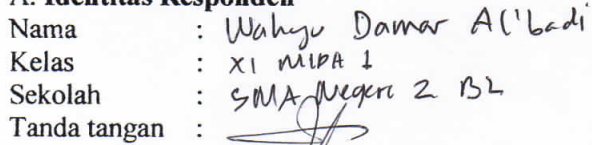 A. Identitas Responden
Nama : Wahyu Damar Al'badi
Kelas : XI MIPA 1
Sekolah : SMA Negeri 2 BL
Tanda tangan :